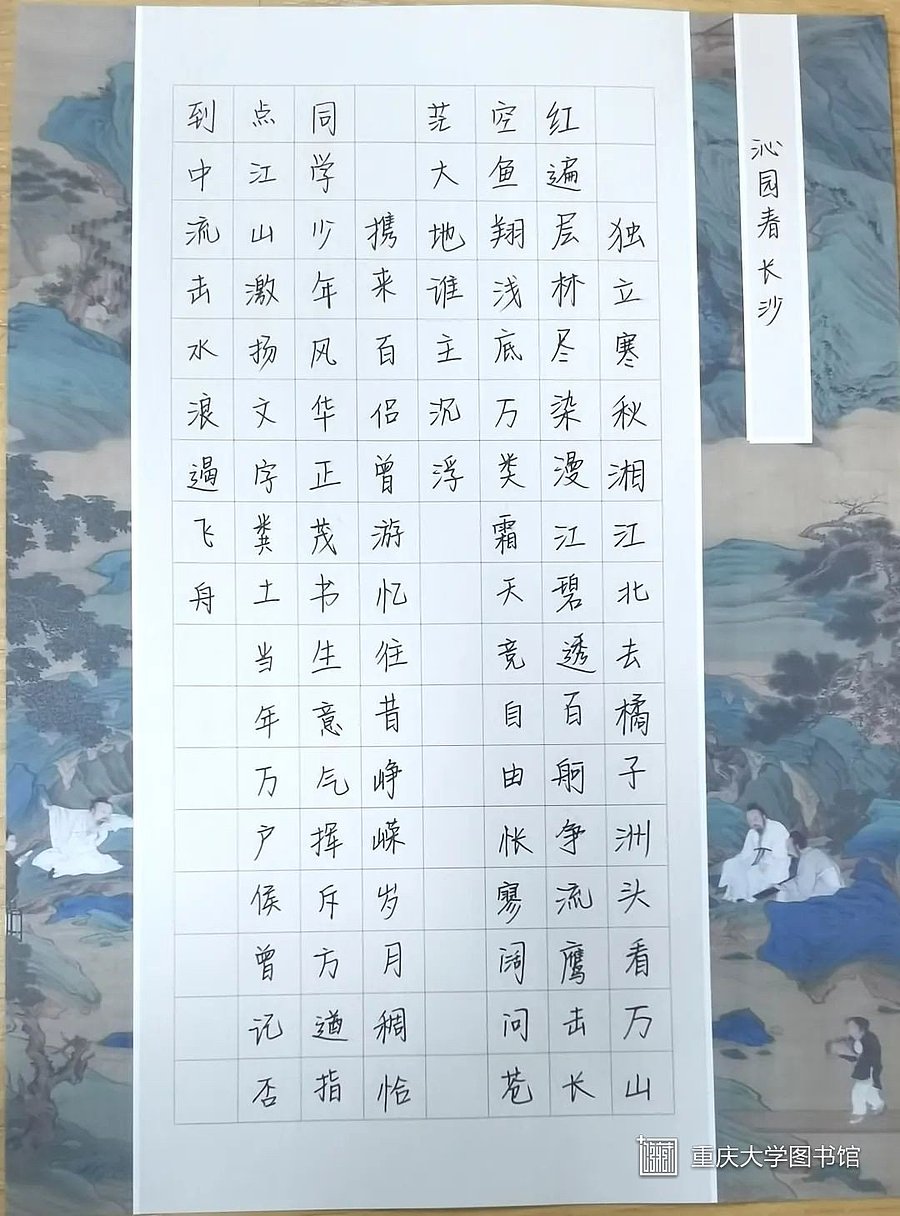 沁园春 长沙
独立寒秋湘江北去橘子洲头看万山
红遍层林尽染漫江碧透百舸争流鹰击长
空鱼翔浅底万类霜天竞自由怅寥阔问苍
茫大地谁主沉浮
携来百侣曾游忆往昔峥嵘岁月稠恰
同学少年风华正茂书生意气挥斥方遒指
点江山激扬文字粪土当年万户侯曾记否
到中流击水浪遏飞舟
重庆大学图书馆